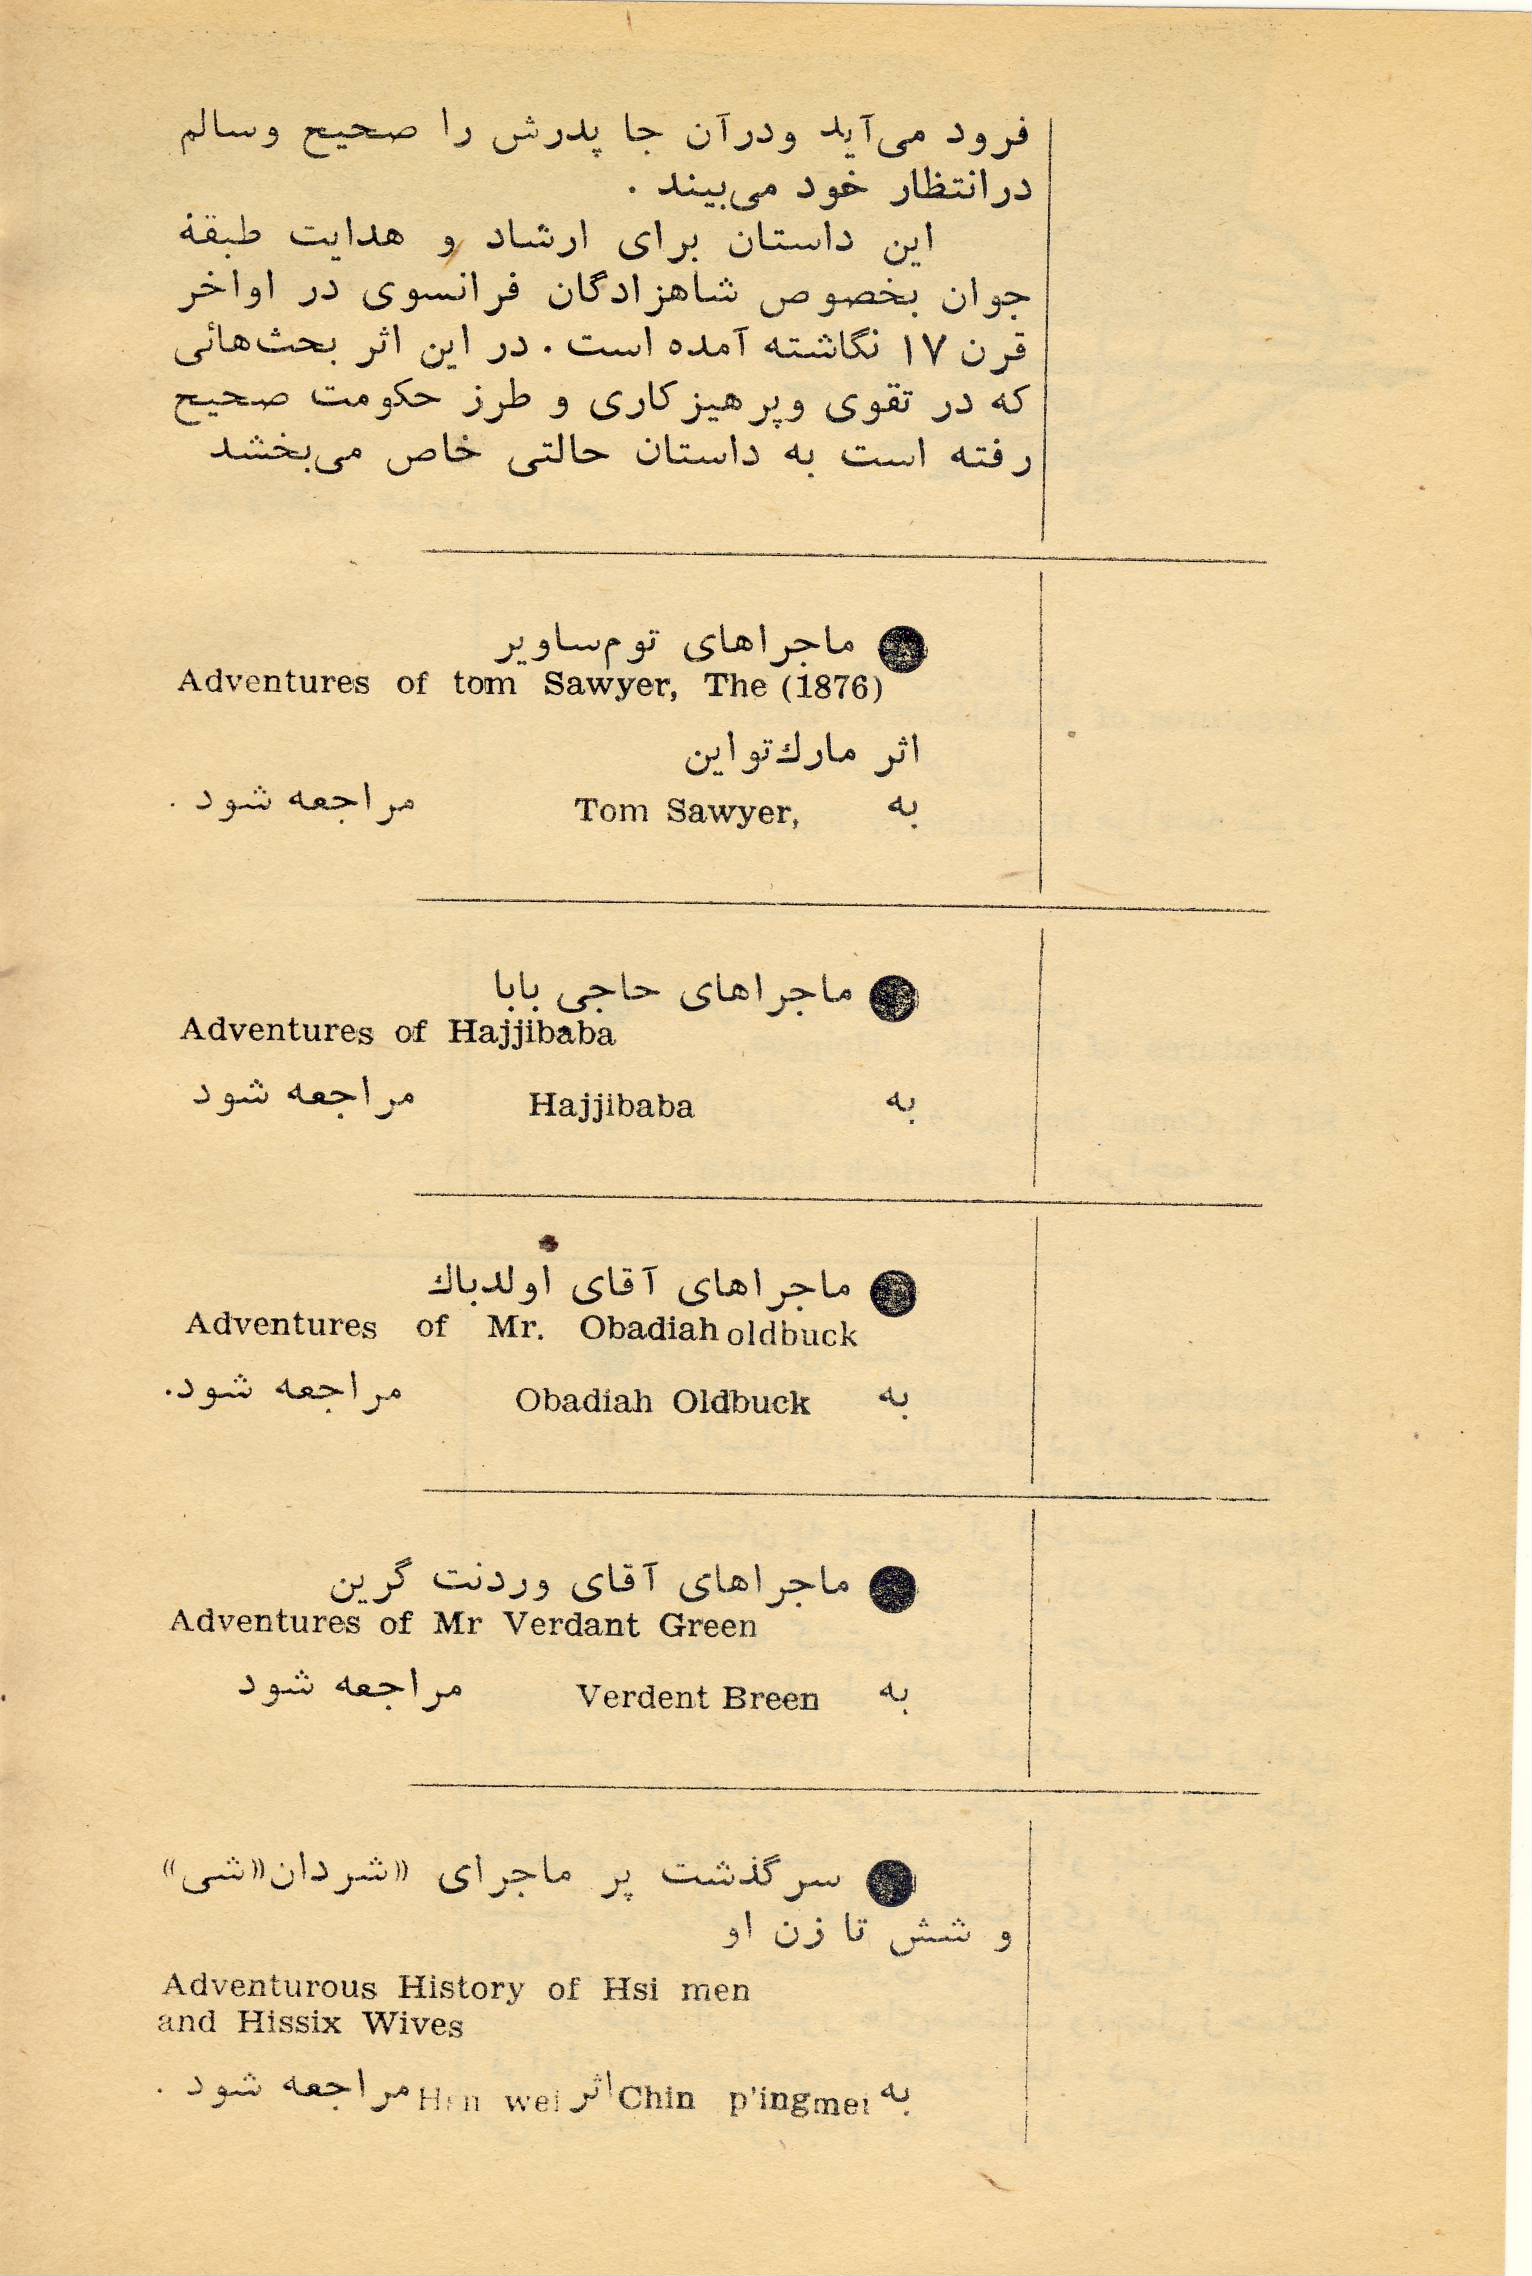 فرود می‌آید ودرآن جا پدرش را صحیح وسالم
درانتظار خود می‌بیند .
این داستان برای ارشاد و هدایت طبقهٔ
جوان بخصوص شاهزادگان فرانسوی در اواخر
قرن ۱۷ نگاشته آمده است . در این اثر بحث‌هائی
که در تقوی وپرهیزکاری و طرز حکومت صحیح
رفته است به داستان حالتی خاص می‌بخشد
ماجراهای توم‌ساویر
Adventures of tom Sawyer, The (1876)
اثر مارك‌تواین
به Tom Sawyer, مراجعه شود .
ماجراهای حاجی بابا
Adventures of Hajjibaba
به Hajjibaba مراجعه شود
ماجراهای آقای اولدباك
Adventures of Mr. Obadiah oldbuck
به Obadiah Oldbuck مراجعه شود.
ماجراهای آقای وردنت گرین
Adventures of Mr Verdant Green
به Verdent Breen مراجعه شود
سرگذشت پر ماجرای «شردان«شی»
و شش تا زن او
Adventurous History of Hsi men
and Hissix Wives
به Chin p'ingmei اثر wei مراجعه شود .